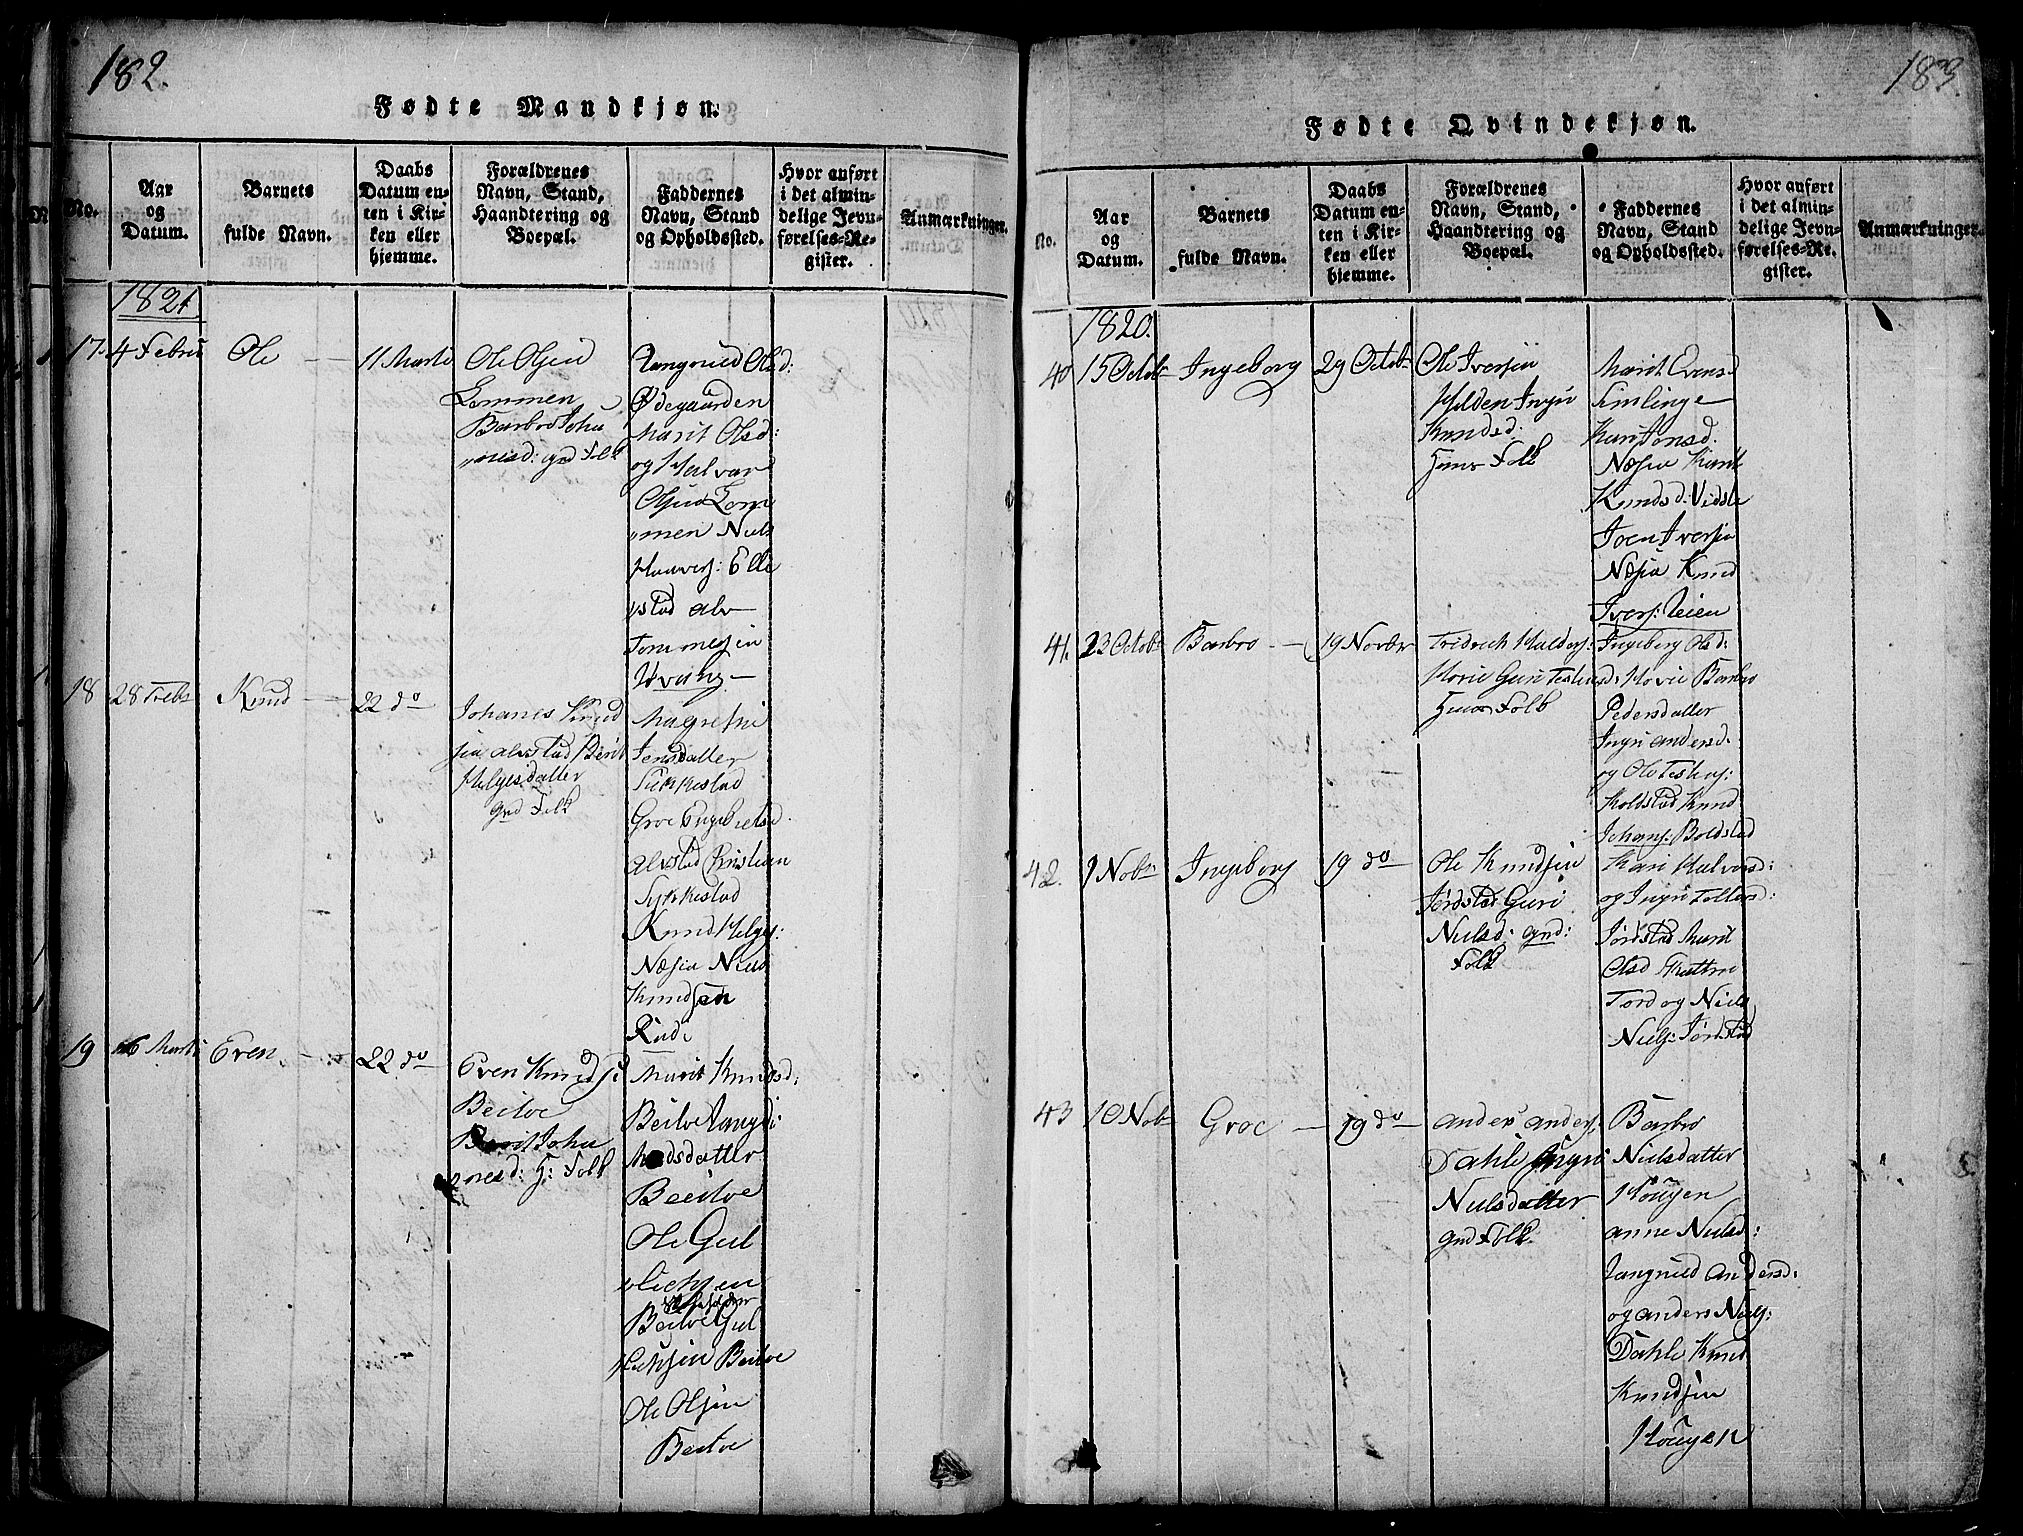 182.
Fødte Mandkjøn.
No.
Aar
og
Datum.
Barnets
fulde Navn.
Daabs
Datum en-
ten i Kir-
ken eller
hjemme.
Forældrenes
Navn, Stand,
Haandtering og
Boepæl.
Faddernes
Navn, Stand
og Opholdssted.
Hvor anført
i det almin-
delige Jevn-
førelses-Re-
gister.
Anmærkninger.
1821
17. 4 Febru
Ole
11 Marti
Ole Olsen
Lommen
Barbro Joha
nnesd: grd Folk
Rangnild Olsd:
Ødegaarden
Marit Olsd:
og Halvar
Olsen Lom
men Niels
Haavers: Elle
stad
Tommesen
18 28 Febr
Knud
22 do
Johanes Knud
sen Alvstad Berit
Helgesdatter
grd Folk
Magrethe
Jensdatter
Sükkestad
Groe Engebretsd.
Alvstad Kristian
Sykkestad
Knud Helges:
Næsja Niels
Knudsen
Rudi
19 6 Marti
Even
22 do
Even Knuds
Beitoe
Berit Joha
nnesd: H: Folk
Marit Knudsd:
Beitoe Rangdi
Madsdatter
Beitoe
Ole Gul
licksen
Beitoe Gul
licksen Beitoe
Ole Olsen
Beitoe
183.
Fødte Qvindekjøn.
No.
Aar
og
Datum.
Barnets
fulde Navn.
Daabs
Datum en-
ten i Kir-
ken eller
hjemme.
Forældrenes
Navn, Stand,
Haandtering og
Boepæl.
Faddernes
Navn, Stand
og Opholdssted.
Hvor anført
i det almin-
delige Jevn-
førelses-Re-
gister.
Anmærkninger.
1820.
40 15 Octob
Ingeborg
29 Octob
Ole Iversen
Hilden Ingri
Knudsd:
Huus Folk
Marit Evens-
Semlinge
Kari Jonsd.
Næsja Marit
Knudsd: Vidste
Joen Iversen
Næsja Knud
Ivers: Veien
41. 23 Octob
Barbro
19 Novbr
Fridrich Halvors:
Hovie Guri
Huus Folk
Ingeborg Olsd:
Hovie Barbro
Pedersdatter
Ingri Andersd.
og Ole
Koldstad Knud
Johans: Boldstad
42. 1 Nobr
Ingeborg
19 do
Ole Knudsen
Jørdstad Guri
Nielsd: grd:
Folk
Kari Halvorsd:
og Ingri Tollevsd:
Jørdstad Marit
Olsd
Tord og Niels
Niels: Jørdstad
43 10 Nob
Groe
19 do
Anders Anders:
Dahle Ingri
Nielsdatter
grd Folk
Barbro
Nielsdatter
Hougen
Anne Nielsd:
Rangnild Andersd:
og Anders Niels:
Dahle Knud
Knudsen
Hougen